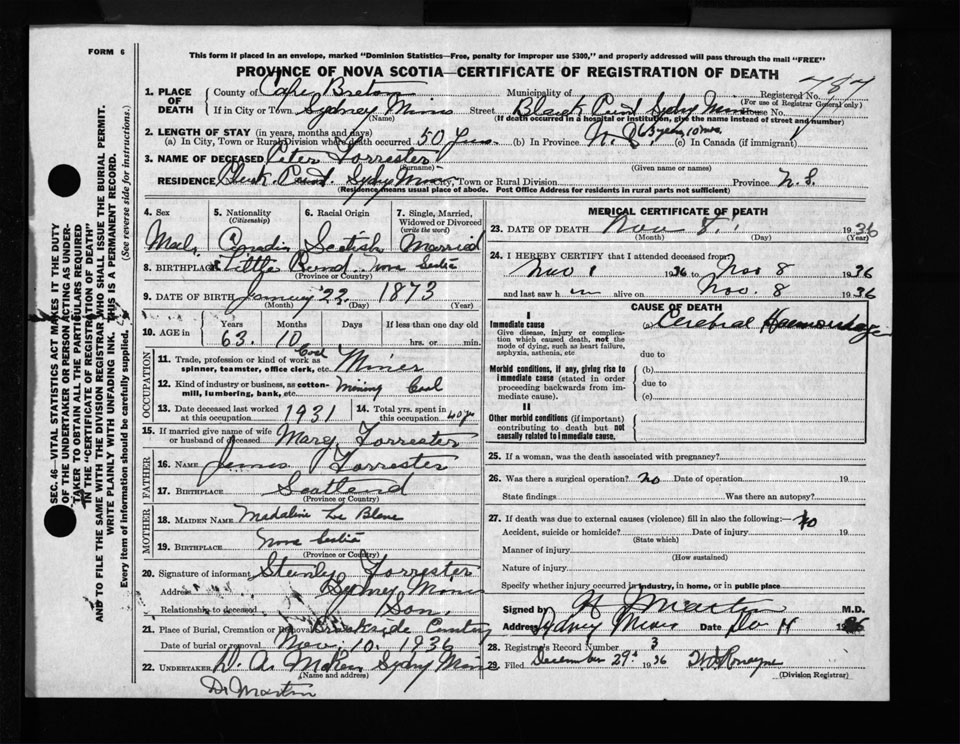 FORM 6
This form if placed in an envelope, marked "Dominion Statistics—Free, penalty for improper use $300," and properly addressed will pass through the mail "FREE"
PROVINCE OF NOVA SCOTIA—CERTIFICATE OF REGISTRATION OF DEATH
1. PLACE OF DEATH
County of Cape Breton Municipality of Registered No.
(For use of Registrar General only)
If in City or Town Sydney Mines Street Sydney Mines House No.
(Name) (If death occurred in a hospital or institution, give the name instead of street and number)
2. LENGTH OF STAY (in years, months and days)
(a) In City, Town or Rural Division where death occurred 50 yrs. (b) In Province N. S. 63 years 10 mos. (c) In Canada (if immigrant)
3. NAME OF DECEASED Peter Forrester
(Surname) (Given name or names)
RESIDENCE Sydney Mines City, Town or Rural Division Province N. S.
(Residence means usual place of abode. Post Office Address for residents in rural parts not sufficient)
4. Sex
Male
5. Nationality
(Citizenship)
6. Racial Origin
Scotish
7. Single, Married, Widowed or Divorced
(write the word)
Married
8. BIRTHPLACE Little Nova Scotia
(Province or Country)
9. DATE OF BIRTH January 22 1873
(Month) (Day) (Year)
10. AGE in
Years Months Days If less than one day old
63 10 hrs. or min.
OCCUPATION
11. Trade, profession or kind of work as spinner, teamster, office clerk, etc. Coal Miner
12. Kind of industry or business, as cotton-mill, lumbering, bank, etc. Mining Coal
13. Date deceased last worked at this occupation 1931
14. Total yrs. spent in this occupation 40 yrs
15. If married give name of wife or husband of deceased Mary Forrester
FATHER
16. NAME James Forrester
17. BIRTHPLACE Scotland
(Province or Country)
MOTHER
18. MAIDEN NAME Madaline Le Blanc
19. BIRTHPLACE Nova Scotia
(Province or Country)
20. Signature of informant Stanly Forrester
Address Sydney Mines
Relationship to deceased Son
21. Place of Burial, Cremation or Removal Brookside Cemetery
Date of burial or removal Nov. 10. 1936
22. UNDERTAKER Sydney Mines
(Name and address)
Dr Martin
MEDICAL CERTIFICATE OF DEATH
23. DATE OF DEATH Nov 8. 1936
(Month) (Day) (Year)
24. I HEREBY CERTIFY that I attended deceased from
Nov 1 1936 to Nov 8 1936
and last saw him alive on Nov. 8 1936
CAUSE OF DEATH
I
Immediate cause
Give disease, injury or complication which caused death, not the mode of dying, such as heart failure, asphyxia, asthenia, etc
(a) Cerebral Haemorrhage
due to
Morbid conditions, if any, giving rise to immediate cause (stated in order proceeding backwards from immediate cause).
(b)
due to
(c)
II
Other morbid conditions (if important) contributing to death but not causally related to immediate cause.
25. If a woman, was the death associated with pregnancy?
26. Was there a surgical operation? no Date of operation 19
State findings Was there an autopsy?
27. If death was due to external causes (violence) fill in also the following:— no
Accident, suicide or homicide? Date of injury 19
(State which)
Manner of injury
(How sustained)
Nature of injury
Specify whether injury occurred in industry, in home, or in public place
Signed by Martin M.D.
Address Sydney Mines Date
28. Registrar's Record Number 3
29. Filed December 29th 1936
(Division Registrar)
SEC. 46—VITAL STATISTICS ACT MAKES IT THE DUTY OF THE UNDERTAKER OR PERSON ACTING AS UNDERTAKER TO OBTAIN ALL THE PARTICULARS REQUIRED IN THE "CERTIFICATE OF REGISTRATION OF DEATH" AND TO FILE THE SAME WITH THE DIVISION REGISTRAR WHO SHALL ISSUE THE BURIAL PERMIT.
WRITE PLAINLY WITH UNFADING INK. THIS IS A PERMANENT RECORD.
Every item of information should be carefully supplied. (See reverse side for instructions.)